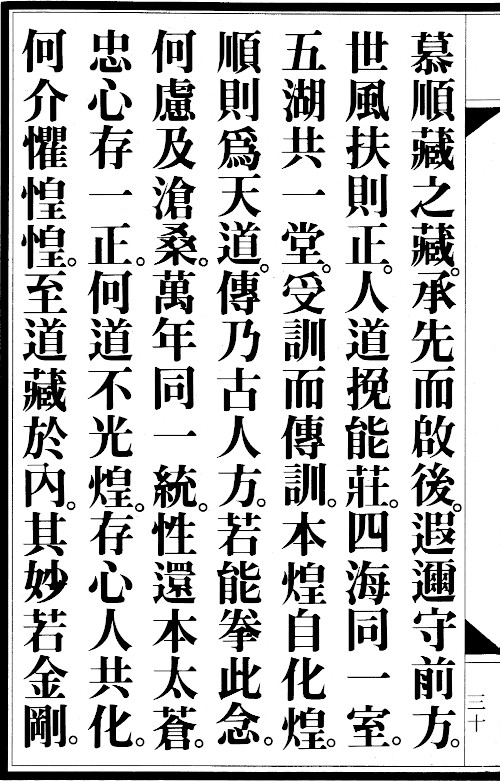 慕順藏之藏。承先而啟後。遐邇守前方。
世風扶則正。人道挽能莊。四海同一室。
五湖共一堂。受訓而傳訓。本煌自化煌。
順則爲天道。傳乃古人方。若能拳此念。
何慮及滄桑。萬年同一統。性還本太蒼。
忠心存一正。何道不光煌。存心人共化。
何介懼惶惶。至道藏於內。其妙若金剛。
三十